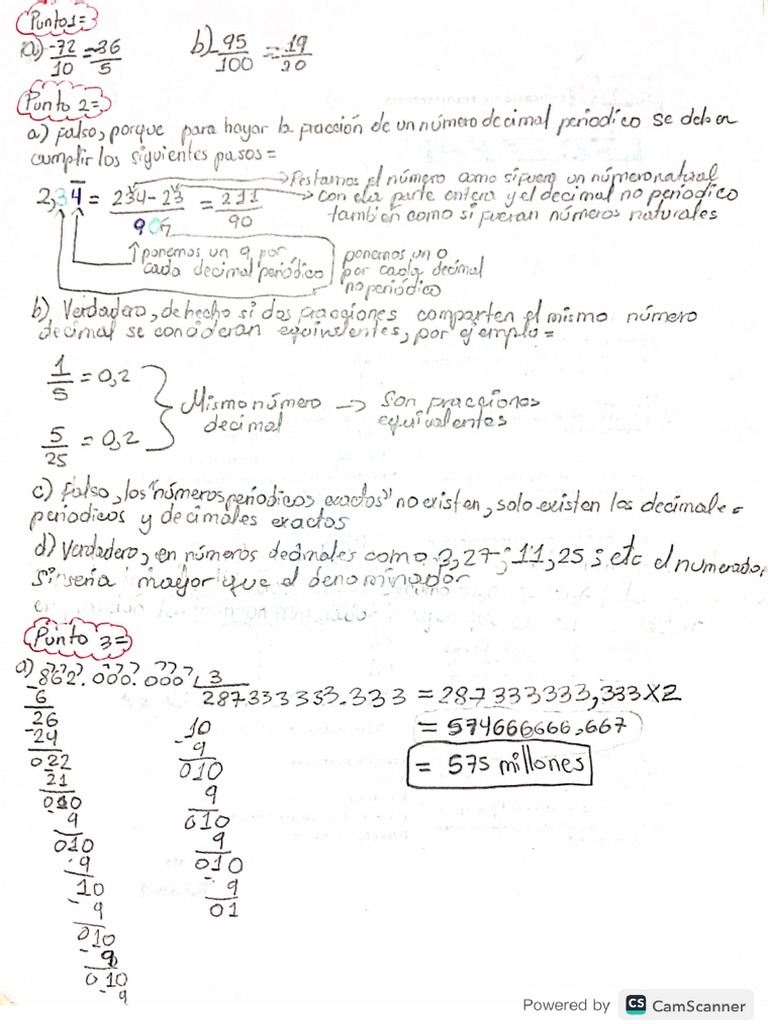 Punto 1=
a) -72/10 = -36/5 b) 95/100 = 19/20
Punto 2=
a) falso, porque para hayar la fracción de un número decimal periodico se deben
cumplir los siguientes pasos =
→ Restamos el número como si fuera un número natural
2,34 = 234-23/90 = 211/90 → con la parte entera y el decimal no periodico
también como si fueran números naturales
↑ponemos un 9 por
cada decimal periódico
ponemos un 0
por cada decimal
no periódico
b) Verdadero, de hecho si dos fracciones comparten el mismo número
decimal se consideran equivalentes, por ejemplo =
1/5 = 0,2
Mismo número → Son fracciones
decimal equivalentes
5/25 = 0,2
c) falso, los "números periodicos exactos" no existen, solo existen los decimales
periodicos y decimales exactos
d) Verdadero, en números decimales como 3,27; 11,25; etc el numerador
si seria mayor que el denominador
Punto 3=
a) 862.000.000 3
287.333333.333 = 287333333,333 X2
= 574666666,667
= 575 millones
-6
26
-24
022
21
010
9
010
-9
10
-9
010
-9
010
-9
10
-9
010
9
010
9
010
-9
01
Powered by CS CamScanner